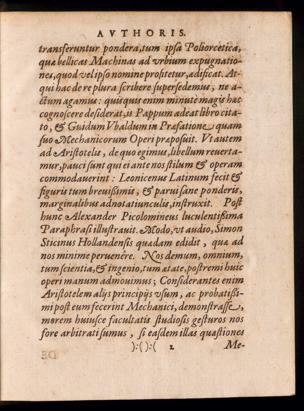 AVTHORIS.
transferuntur pondera, tum ipsa Poliorcetica,
quæ bellicas Machinas ad vrbium expugnatio-
nes, quod vel ipso nomine profitetur, ædificat. At-
qui hac de re plura scribere supersedemus, ne a-
ctum agamus: quisquis enim minutè magis hæc
cognoscere desiderat, is Pappum adeat libro cita-
to, & Guidum Vbaldum in Præfatione, quam
suo Mechanicorum Operi præposuit. Vt autem
ad Aristotelis, de quo egimus, libellum reuerta-
mur, pauci sunt qui ei ante nos stilum & operam
commodauerint: Leonicenus Latinum fecit &
figuris tum breuissimis, & parui sane ponderis,
marginalibus adnotatiunculis, instruxit. Post
hunc Alexander Picolomineus luculentissima
Paraphrasi illustrauit. Modo, vt audio, Simon
Sticinus Hollandensis quædam edidit, quæ ad
nos minime peruenère. Nos demum, omnium,
tum scientia, & ingenio, tum ætate, postremi huic
operi manum admouimus; Considerantes enim
Aristotelem alijs principijs vsum, ac probatissi-
mi post eum fecerint Mechanici, demonstrasse,
morem huiusce facultatis studiosis gesturos nos
fore arbitrati sumus, si easdem illas quæstiones
):( ):( 2 Me-